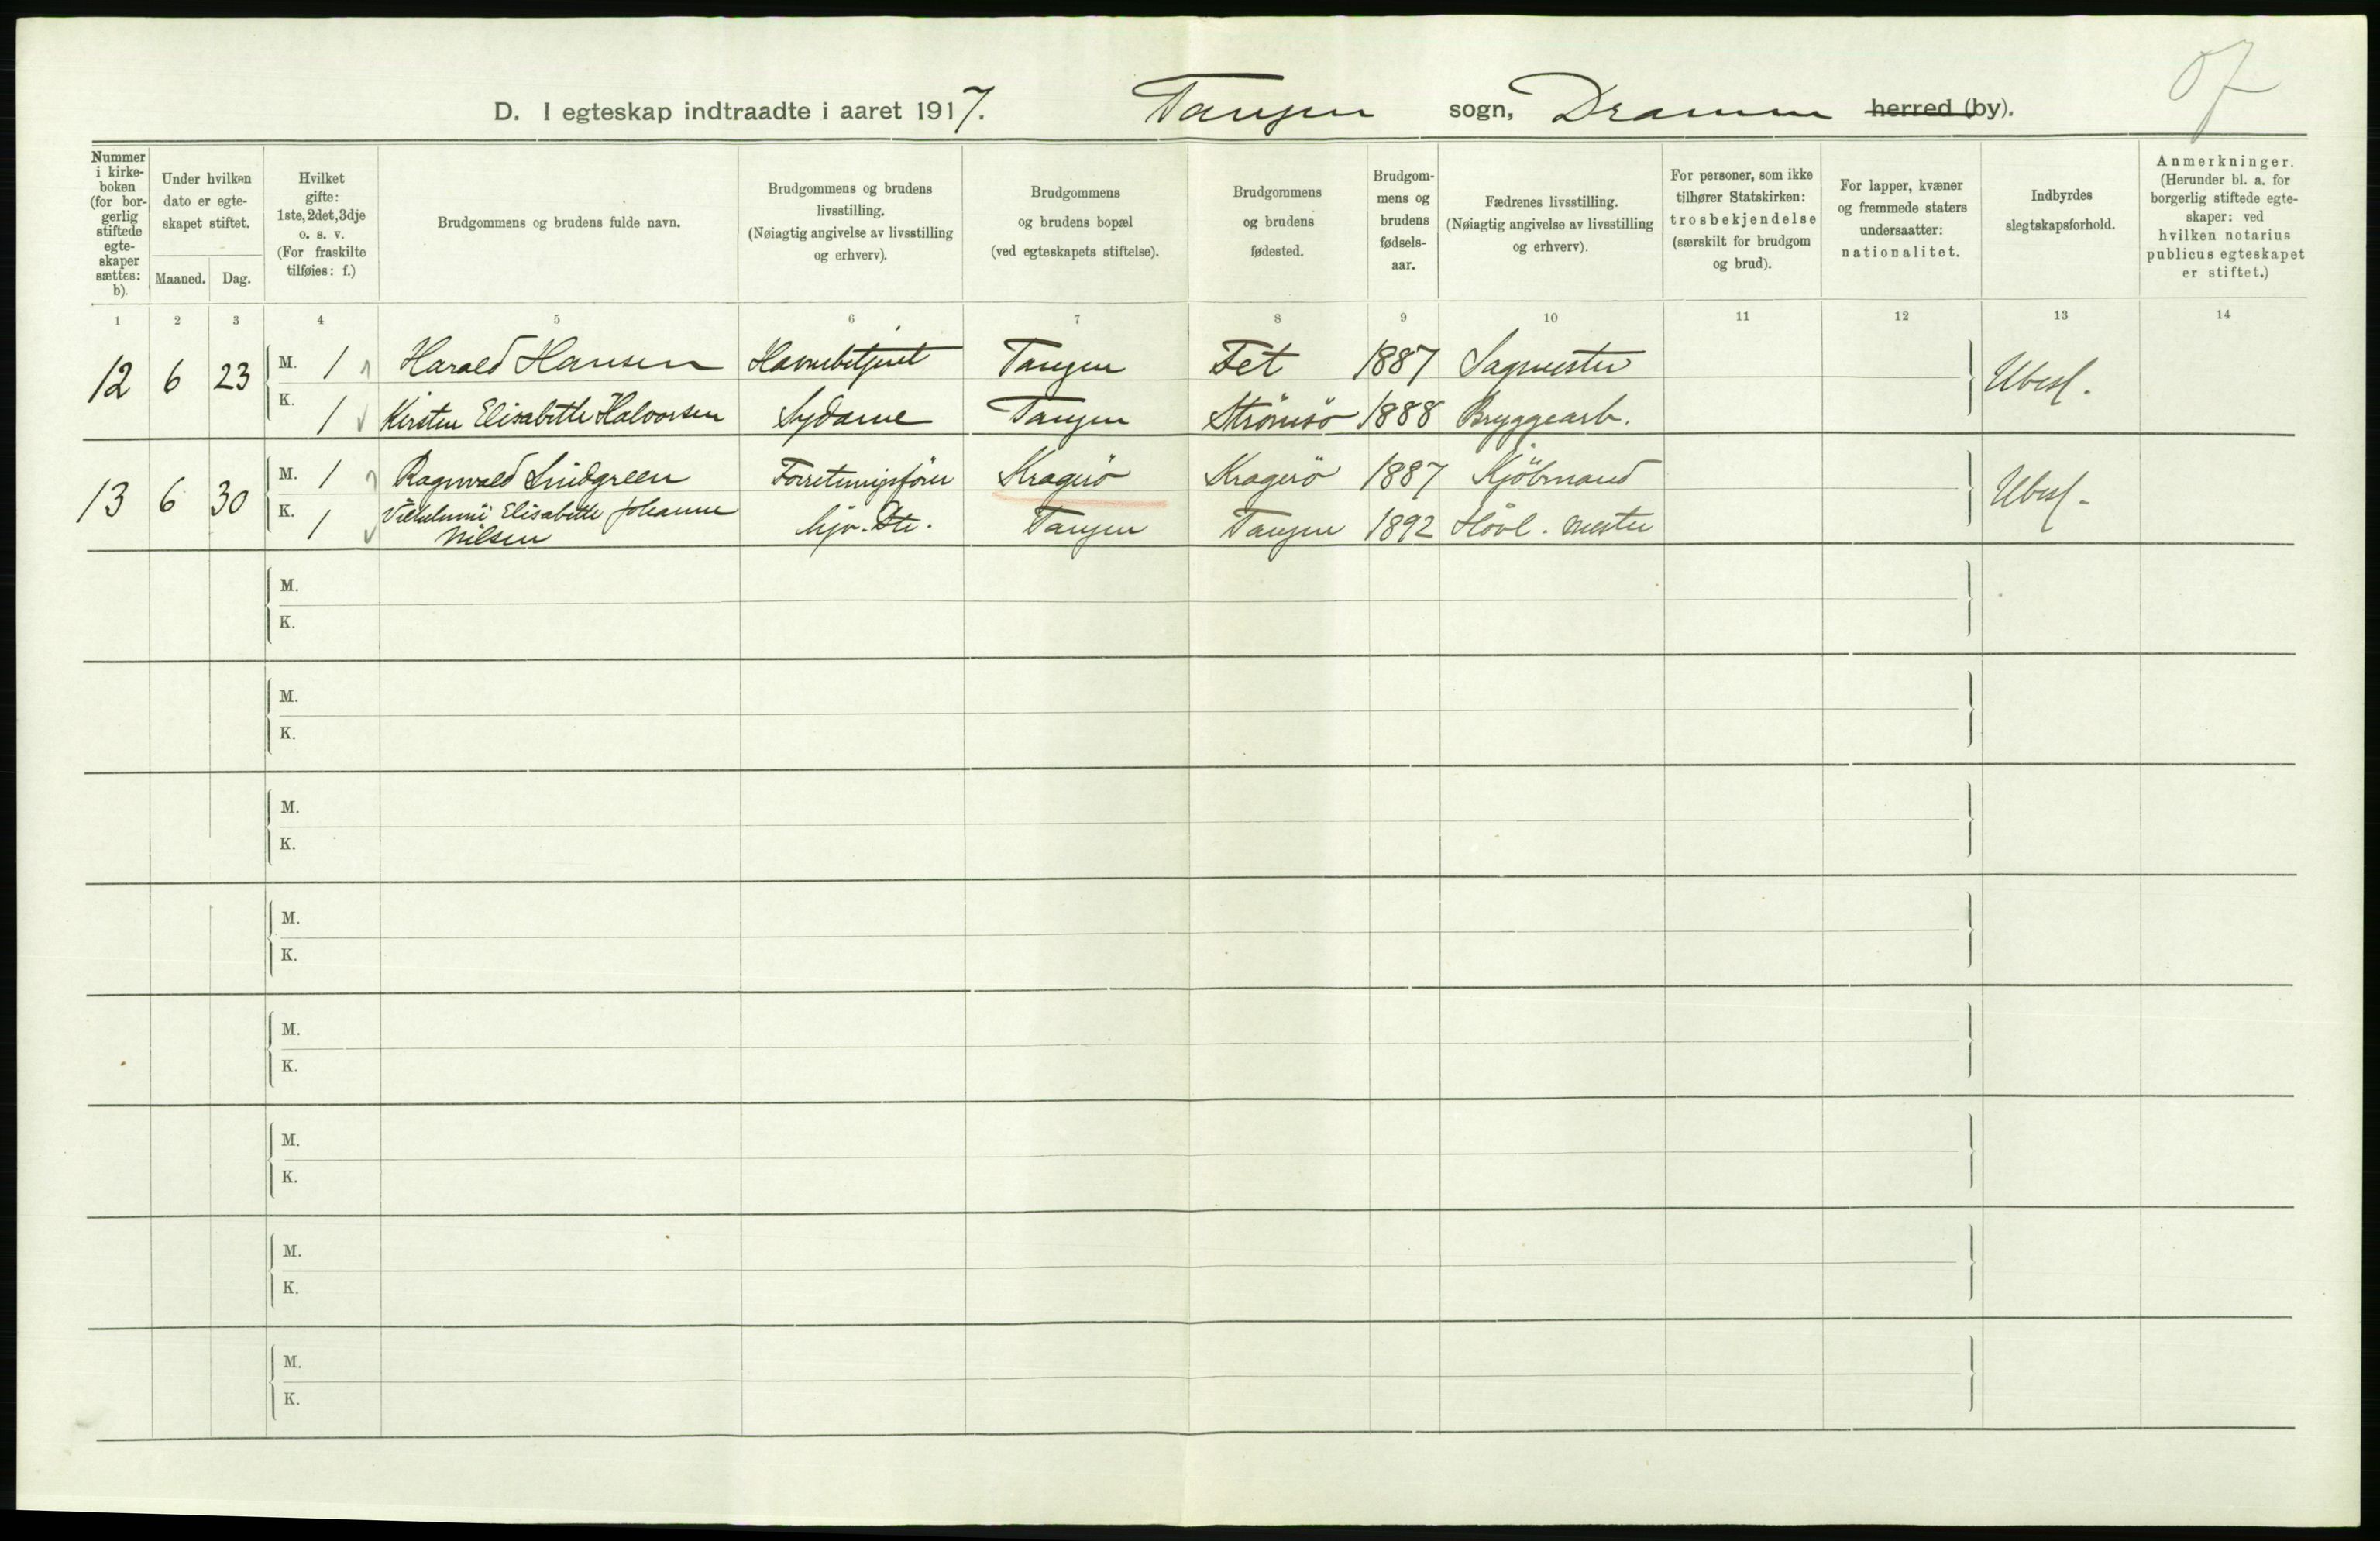 07
D. I egteskap indtraadte i aaret 1917. Tangen sogn, Drammen herred (by).
Nummer i kirkeboken (for borgerlig stiftede egteskaper sættes: b).
Under hvilken dato er egteskapet stiftet.
Maaned. Dag.
Hvilket gifte: 1ste, 2det, 3dje o. s. v. (For fraskilte tilføies: f.)
Brudgommens og brudens fulde navn.
Brudgommens og brudens livsstilling. (Nøiagtig angivelse av livsstilling og erhverv).
Brudgommens og brudens bopæl (ved egteskapets stiftelse).
Brudgommens og brudens fødested.
Brudgommens og brudens fødselsaar.
Fædrenes livsstilling. (Nøiagtig angivelse av livsstilling og erhverv).
For personer, som ikke tilhører Statskirken: trosbekjendelse (særskilt for brudgom og brud).
For lapper, kvæner og fremmede staters undersaatter: nationalitet.
Indbyrdes slegtskapsforhold.
Anmerkninger. (Herunder bl. a. for borgerlig stiftede egteskaper: ved hvilken notarius publicus egteskapet er stiftet.)
1 2 3 4 5 6 7 8 9 10 11 12 13 14
12 6 23 M. 1 Harald Hansen Havnebetjent Tangen Fet 1887 Sagmester Ubesl.
K. 1 Kirsten Elisabeth Halvorsen Sydame Tangen Strømsö 1888 Bryggearb.
13 6 30 M. 1 Ragnvald Lindgreen Forretningsfører Kragerö Kragerö 1887 Kjöbmand Ubesl.
K. 1 Vilhelmine Elisabeth Johanne Nilsen Tangen Tangen 1892 Hövl. mester
M.
K.
M.
K.
M.
K.
M.
K.
M.
K.
M.
K.
M.
K.
M.
K.